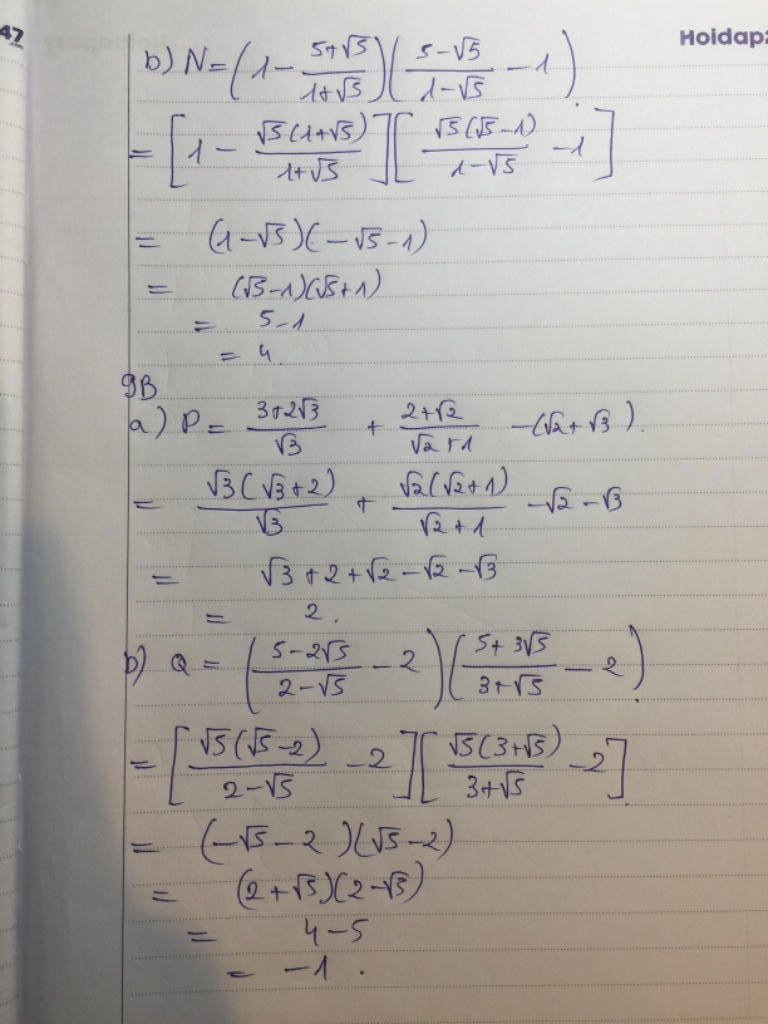 47
Hoidap2
b) N = (1 - (5+√5)/(1+√5)) ((5-√5)/(1-√5) - 1).
= [1 - √5(1+√5)/(1+√5)] [√5(√5-1)/(1-√5) - 1]
= (1-√5)(-√5-1)
= (√5-1)(√5+1)
= 5-1
= 4.
9B
a) P = (3+2√3)/√3 + (2+√2)/(√2+1) - (√2+√3).
= √3(√3+2)/√3 + √2(√2+1)/(√2+1) - √2 - √3
= √3+2+√2-√2-√3
= 2.
b) Q = ((5-2√5)/(2-√5) - 2) ((5+3√5)/(3+√5) - 2).
= [√5(√5-2)/(2-√5) - 2] [√5(3+√5)/(3+√5) - 2].
= (-√5-2)(√5-2)
= (2+√5)(2-√5)
= 4-5
= -1.